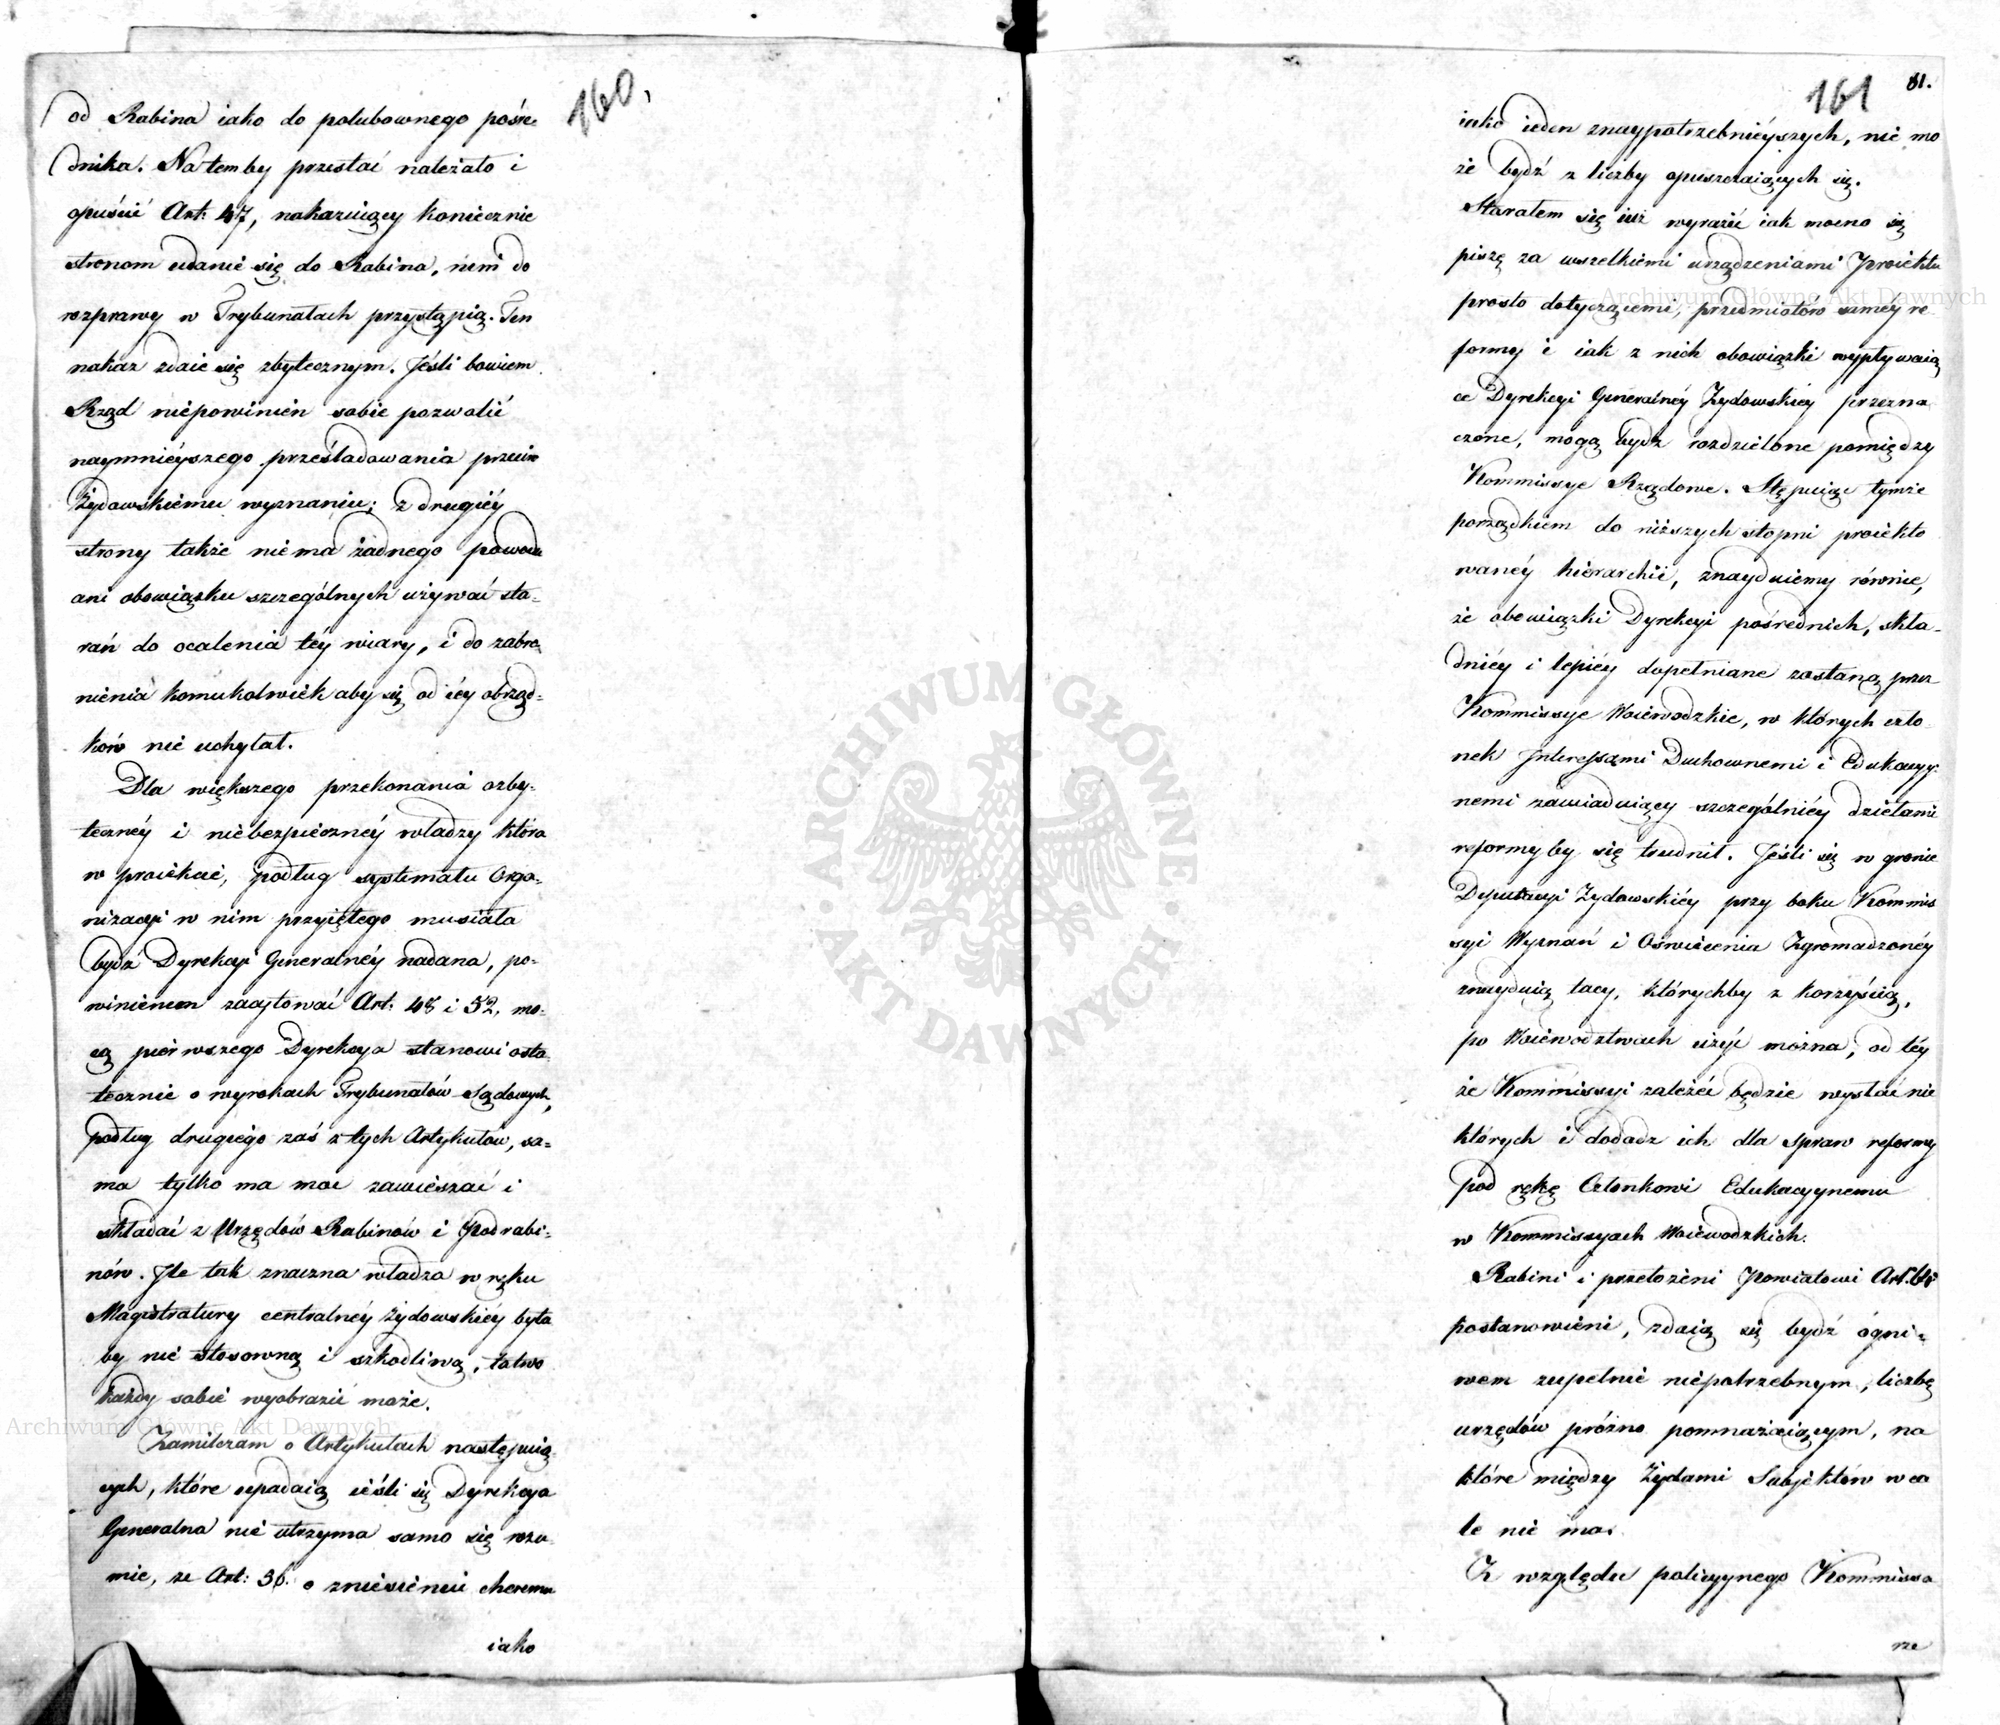 160.
od Rabina iako do polubownego pośre=
dnika. Na tem by przestać należało i
opuścić Art: 47, nakazuiący koniecznie
stronom udanie się do Rabina, nim do
rozprawy w Trybunałach przystąpią. Ten
nakaz zdaie się zbytecznym. Jeśli bowiem
Rząd niepowinien sobie pozwolić
naymnieyszego prześladowania przeciw
Żydowskiemu wyznaniu; z drugiéy
strony także niema żadnego powodu
ani obowiązku szczególnych używać sta=
rań do ocalenia téy wiary, i do zabro=
nienia komukolwiek aby się od iéy obrząd=
ków nie uchylał.
Dla większego przekonania ozby=
tecznéy i niebezpiecznéy władzy która
w proiekcie, podług systematu Orga=
nizacyi w nim przyiętego musiała
bydź Dyrekcyi Generalnéy nadana, po=
winienem zacytować Art. 48 i 52, mo=
cą pierwszego Dyrekcya stanowi osta
tecznie o wyrokach Trybunałów Sądowych,
podług drugiego zaś z tych Artykułów, sa=
ma tylko ma moc zawieszać i
składać z Urzędów Rabinów i Podrabi=
nów. Ile tak znaczna władza w ręku
Magistratury centralnéy żydowskiéy była
by nie stosowną i szkodliwą, łatwo
każdy sobie wyobrazić może.
Zamilczam o Artykułach następuią=
cych, które upadaią ieśli się Dyrekcya
Generalna nie utrzyma samo się rozu=
mie, że Art: 36. o zniesieniu cheremu
iako
161
81.
iako ieden znaypotrzebnieyszych, nie mo
że bydź z liczby opuszczaiących się.
Starałem się iuż wyrazić iak mocno się
piszę za wszelkiemi urządzeniami Proiektu
prosto dotyczącemi, przedmiotów saméy re
formy i iak z nich obowiązki wypływaią
ce Dyrekcyi Generalnéy Żydowskiéy przezna
czone, mogą bydź rozdzielone pomiędzy
Kommissye Rządowe. Stępuiąc tymże
porządkiem do niższych stopni proiekto
wanéy hierarchii, znayduiemy równie,
że obowiązki Dyrekcyi pośrednich, skła=
dniéy i lepiéy dopełniane zostaną przez
Kommissye Woiewodzkie, w których czło=
nek Interessami Duchownemi i Edukacyy=
nemi zawiaduiący szczególniéy dziełami
reformy by się trudnił. Jeśli się w gronie
Deputacyi Żydowskiéy przy boku Kommis
syi Wyznań i Oświecenia Zgromadzonéy
znayduią tacy, którychby z korzyścią,
po Woiewodztwach użyć można, od téy
że Kommissyi zależéć będzie wysłać nie
których i dodadź ich dla spraw reformy
pod rękę Członkowi Edukacyynemu
w Kommissyach Woiewodzkich.
Rabini i przełożeni Powiatowi
postanowieni, zdaią się bydź ogni=
wem zupełnie niepotrzebnym, liczbę
urzędów próżno pomnażaiącym, na
które między Żydami Subjektów wca
le nie ma.
Z względu policyynego Kommissa
rze
ARCHIWUM GŁÓWNE AKT DAWNYCH
Archiwum Główne Akt Dawnych
Archiwum Główne Akt Dawnych